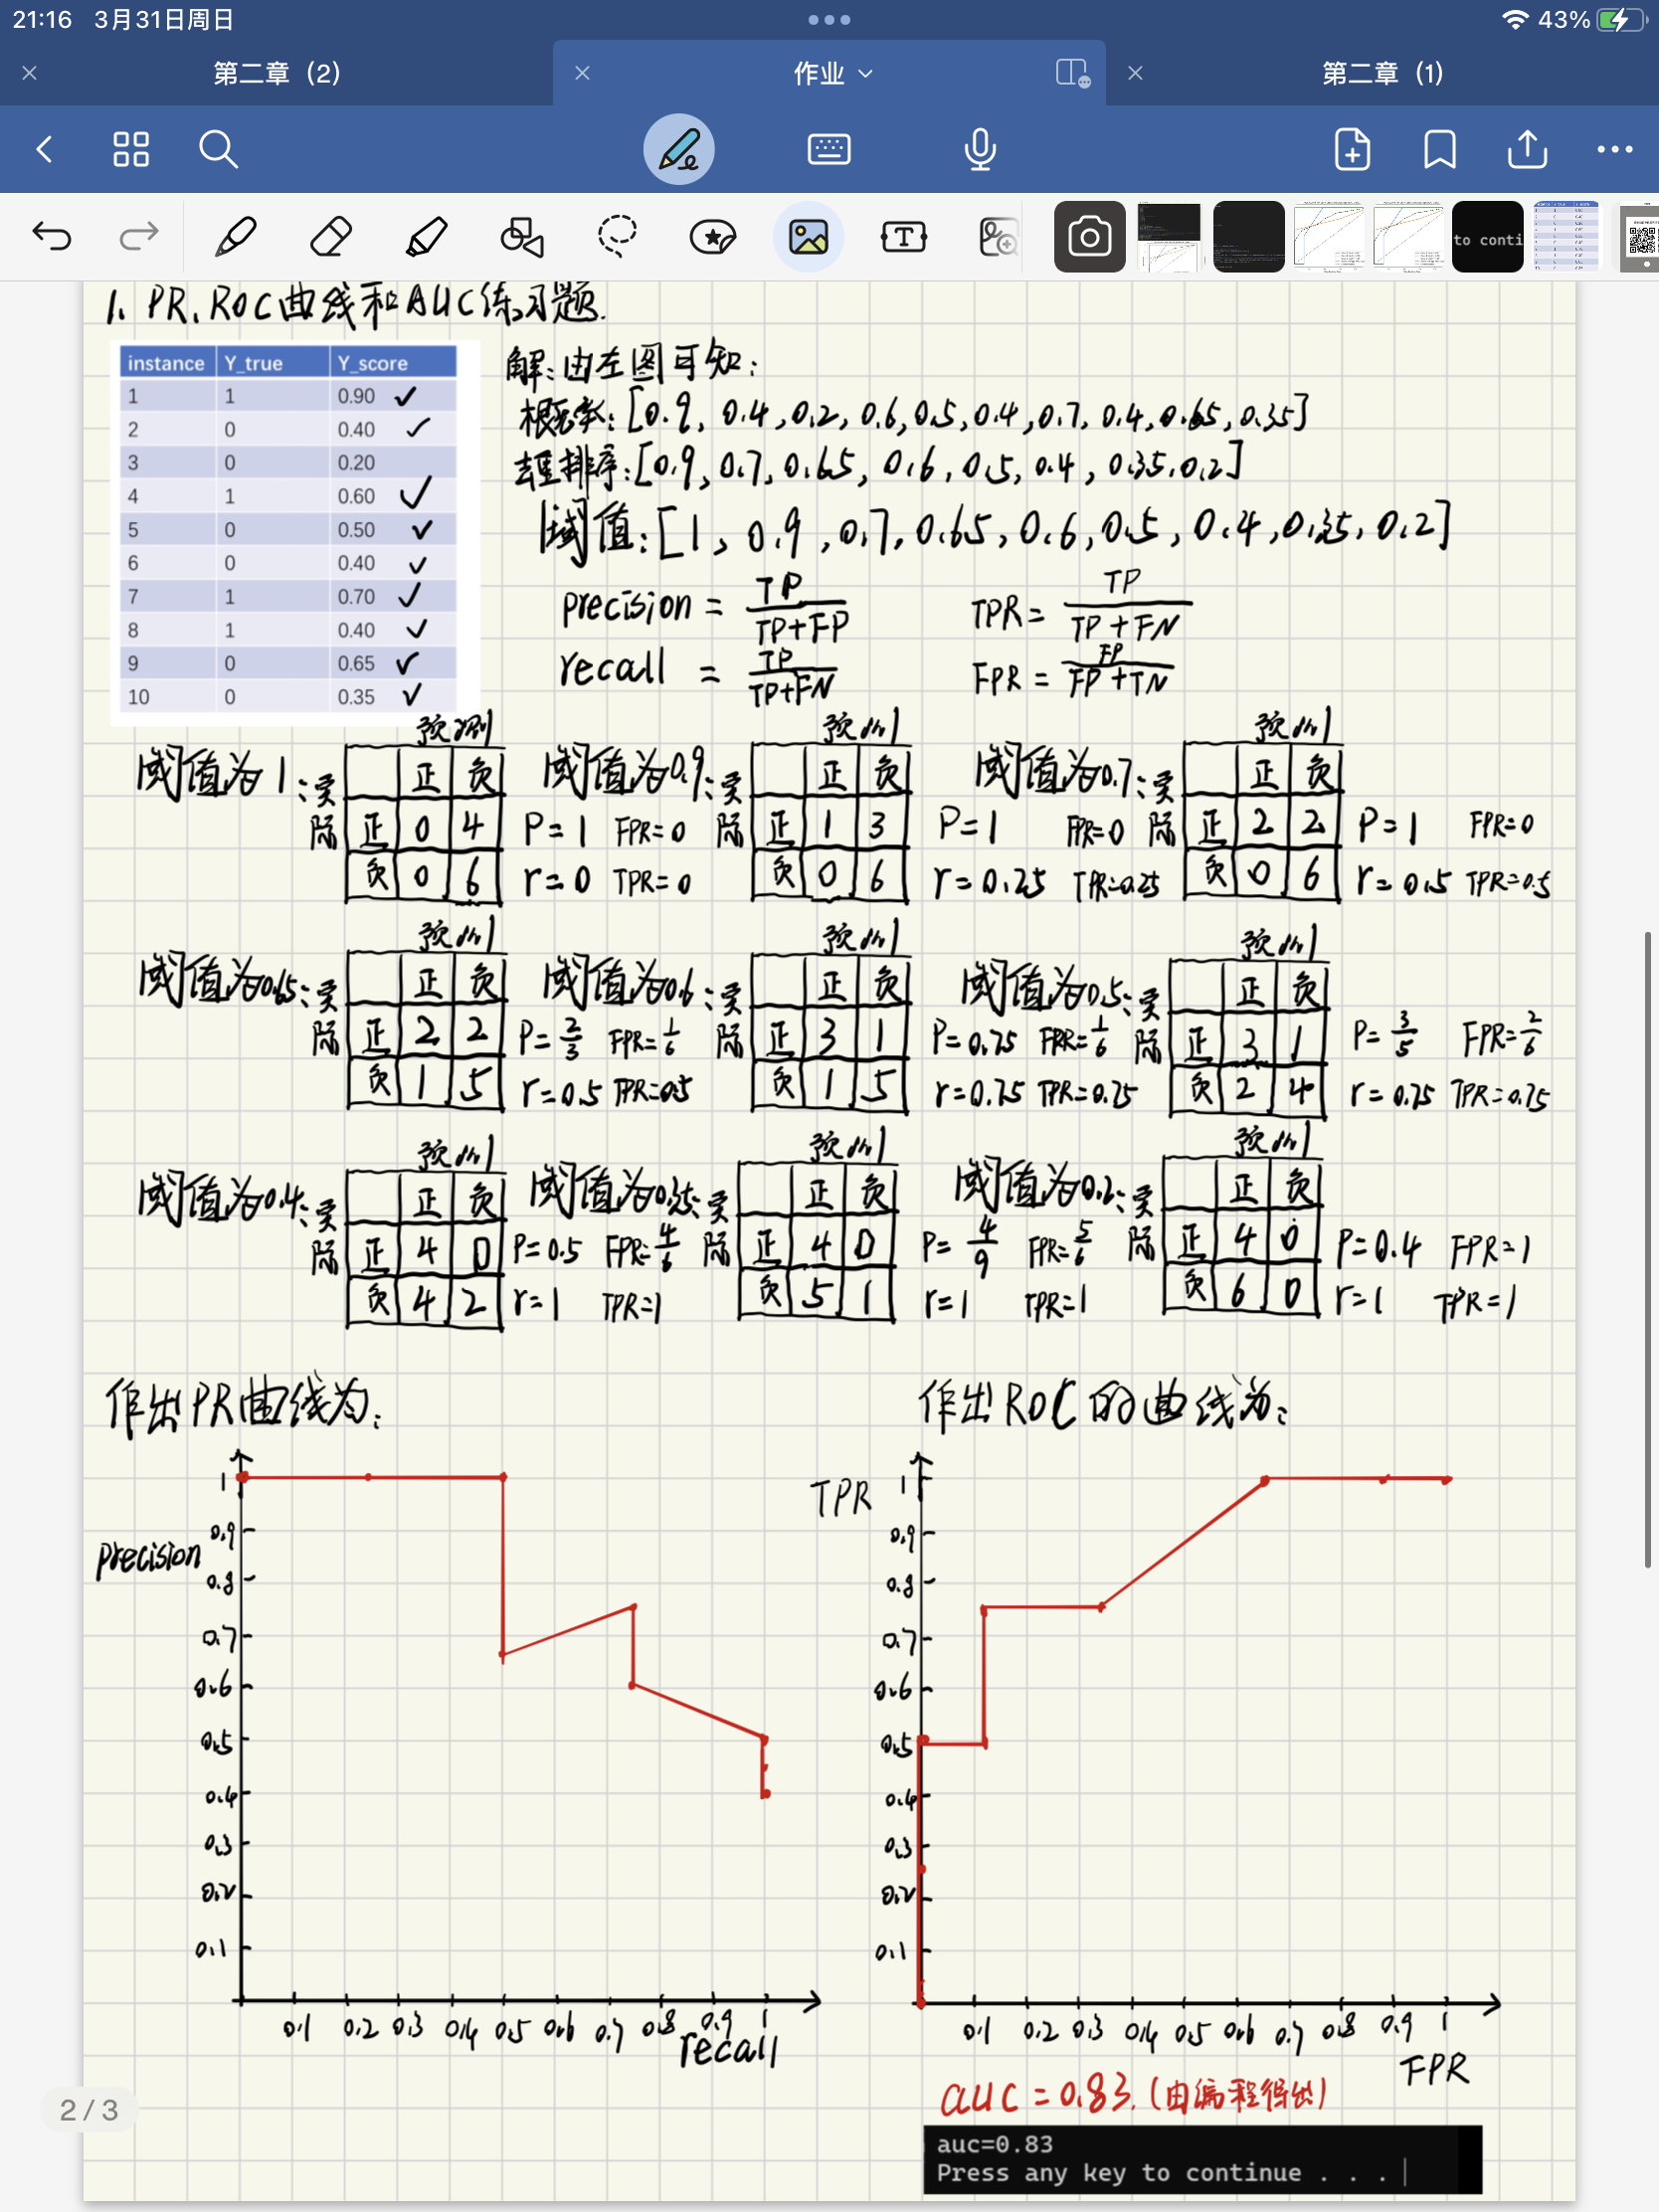 21:16 3月31日周日
43%
第二章 (2)
作业
第二章 (1)
to conti
1. PR、ROC曲线和AUC练习题.
instance Y_true Y_score
1 1 0.90 ✓
2 0 0.40 ✓
3 0 0.20
4 1 0.60 ✓
5 0 0.50 ✓
6 0 0.40 ✓
7 1 0.70 ✓
8 1 0.40 ✓
9 0 0.65 ✓
10 0 0.35 ✓
解:由左图可知:
概率:[0.9, 0.4, 0.2, 0.6, 0.5, 0.4, 0.7, 0.4, 0.65, 0.35]
去重排序:[0.9, 0.7, 0.65, 0.6, 0.5, 0.4, 0.35, 0.2]
阈值:[1, 0.9, 0.7, 0.65, 0.6, 0.5, 0.4, 0.35, 0.2]
precision = TP/TP+FP TPR = TP/TP+FN
recall = TP/TP+FN FPR = FP/FP+TN
阈值为1:
预测
实际
正 负
正 0 4
负 0 6
P=1 FPR=0
r=0 TPR=0
阈值为0.9:
预测
实际
正 负
正 1 3
负 0 6
P=1 FPR=0
r=0.25 TPR=0.25
阈值为0.7:
预测
实际
正 负
正 2 2
负 0 6
P=1 FPR=0
r=0.5 TPR=0.5
阈值为0.65:
预测
实际
正 负
正 2 2
负 1 5
P=2/3 FPR=1/6
r=0.5 TPR=0.5
阈值为0.6:
预测
实际
正 负
正 3 1
负 1 5
P=0.75 FPR=1/6
r=0.75 TPR=0.75
阈值为0.5:
预测
实际
正 负
正 3 1
负 2 4
P=3/5 FPR=2/6
r=0.75 TPR=0.75
阈值为0.4:
预测
实际
正 负
正 4 0
负 4 2
P=0.5 FPR=4/6
r=1 TPR=1
阈值为0.35:
预测
实际
正 负
正 4 0
负 5 1
P=4/9 FPR=5/6
r=1 TPR=1
阈值为0.2:
预测
实际
正 负
正 4 0
负 6 0
P=0.4 FPR=1
r=1 TPR=1
作出PR曲线为:
precision
1
0.9
0.8
0.7
0.6
0.5
0.4
0.3
0.2
0.1
0.1 0.2 0.3 0.4 0.5 0.6 0.7 0.8 0.9 1
recall
作出ROC的曲线为:
TPR
1
0.9
0.8
0.7
0.6
0.5
0.4
0.3
0.2
0.1
0.1 0.2 0.3 0.4 0.5 0.6 0.7 0.8 0.9 1
FPR
auc = 0.83. (由编程得出)
auc=0.83
Press any key to continue . . .
2 / 3